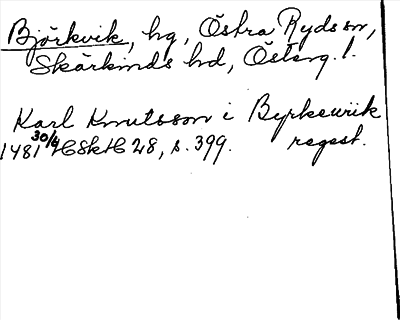 Björkvik, hg, Östra Ryds sn,
Skärkinds hd, Österg. l.
Karl Knutsson i Byrkewiik
1481 30/4 HSkH 28, s. 399. regest.